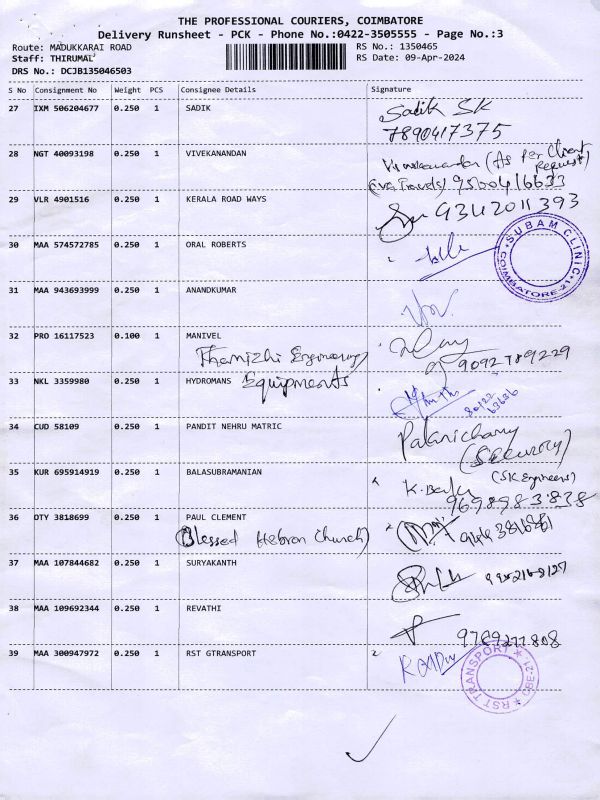 THE PROFESSIONAL COURIERS, COIMBATORE
Delivery Runsheet - PCK - Phone No.:0422-3505555 - Page No.:3
Route: MADUKKARAI ROAD RS No.: 1350465
Staff: THIRUMAL RS Date: 09-Apr-2024
DRS No.: DCJB135046503
S No Consignment No Weight PCS Consignee Details Signature
27 IXM 506204677 0.250 1 SADIK Sadik SK
7890417375
28 NGT 40093198 0.250 1 VIVEKANANDAN Vivekanandan (As Per Client Request)
(Eva Travels) 9500416633
29 VLR 4901516 0.250 1 KERALA ROAD WAYS 9342011393
30 MAA 574572785 0.250 1 ORAL ROBERTS
SUBAM CLINIC
COIMBATORE-21
31 MAA 943693999 0.250 1 ANANDKUMAR
32 PRO 16117523 0.100 1 MANIVEL
Thamizhi Engineering 9092789229
33 NKL 3359980 0.250 1 HYDROMANS Equipments
34 CUD 58109 0.250 1 PANDIT NEHRU MATRIC Palanichamy
(Security)
35 KUR 695914919 0.250 1 BALASUBRAMANIAN K. (SK Engineers)
9698983838
36 DTY 3818699 0.250 1 PAUL CLEMENT
(Blessed Hebron Church)
37 MAA 107844682 0.250 1 SURYAKANTH
38 MAA 109692344 0.250 1 REVATHI 9789277808
39 MAA 300947972 0.250 1 RST GTRANSPORT
RST TRANSPORT
CBE-21